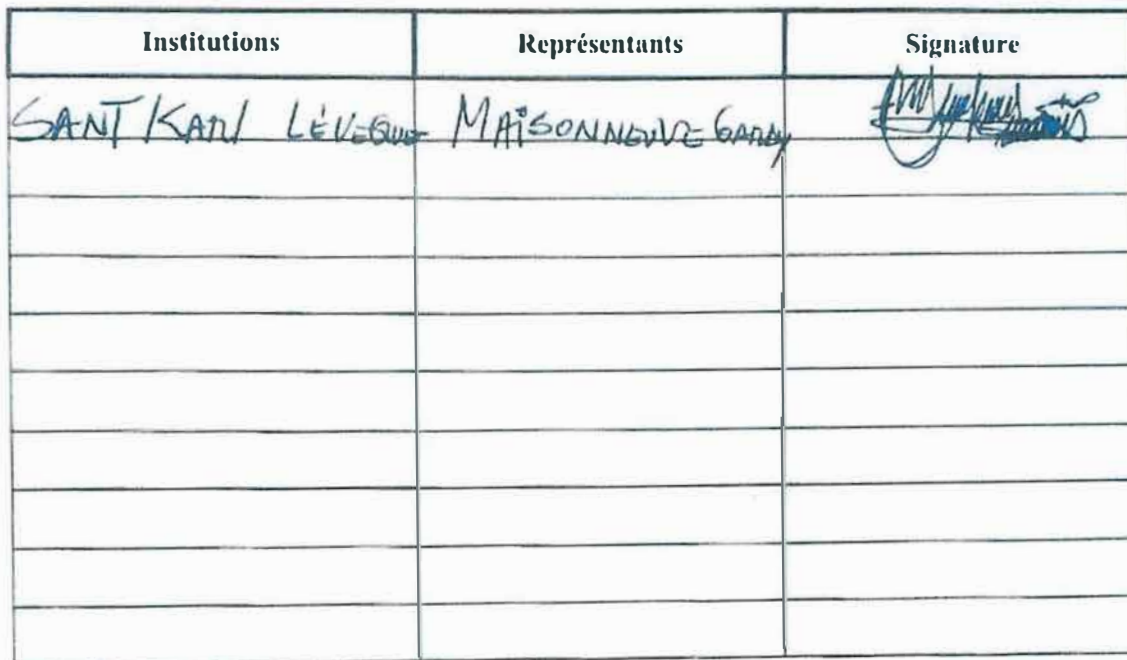 Institutions Représentants Signature
SANT KARL LÉVEQUE MAISONNEUVE GARDY